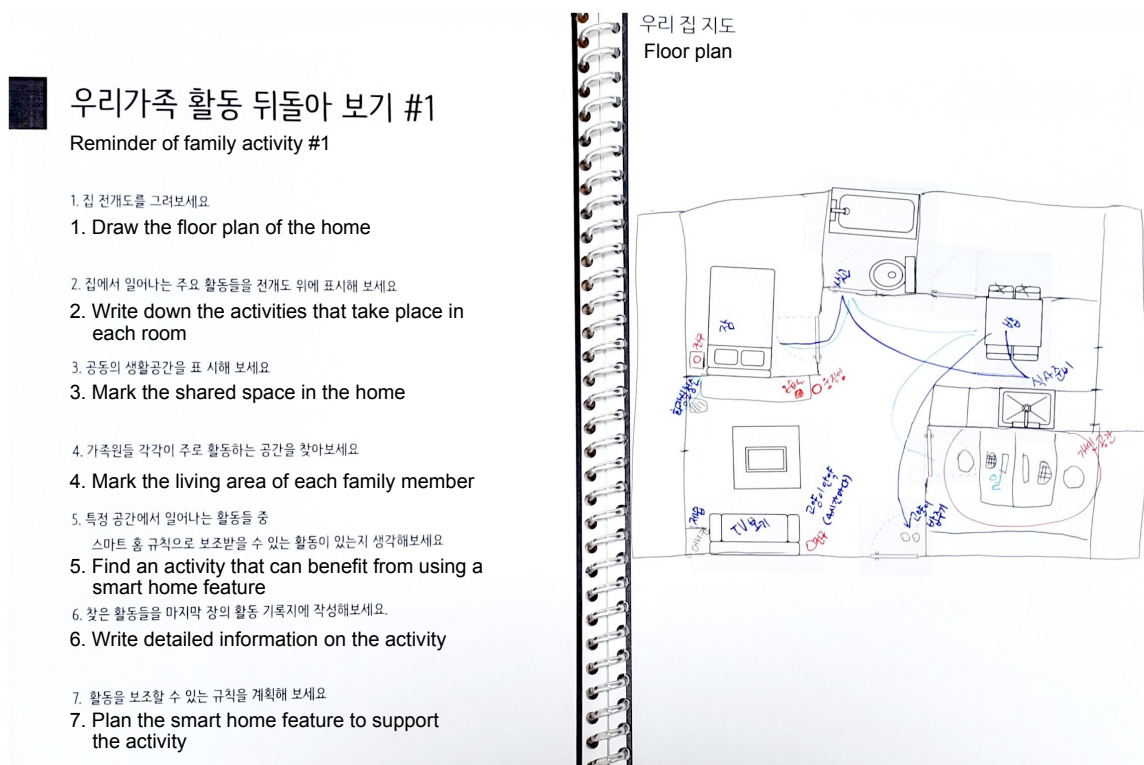 우리가족 활동 뒤돌아 보기 #1
Reminder of family activity #1
1. 집 전개도를 그려보세요
1. Draw the floor plan of the home
2. 집에서 일어나는 주요 활동들을 전개도 위에 표시해 보세요
2. Write down the activities that take place in
each room
3. 공동의 생활공간을 표 시해 보세요
3. Mark the shared space in the home
4. 가족원들 각각이 주로 활동하는 공간을 찾아보세요
4. Mark the living area of each family member
5. 특정 공간에서 일어나는 활동들 중
스마트 홈 규칙으로 보조받을 수 있는 활동이 있는지 생각해보세요
5. Find an activity that can benefit from using a
smart home feature
6. 찾은 활동들을 마지막 장의 활동 기록지에 작성해보세요.
6. Write detailed information on the activity
7. 활동을 보조할 수 있는 규칙을 계획해 보세요
7. Plan the smart home feature to support
the activity
우리 집 지도
Floor plan
잠
밥
전구
식사준비
움직임
개인공간
일
고양이 안약
(4시간마다)
TV보기
전구
고양이
밥주기